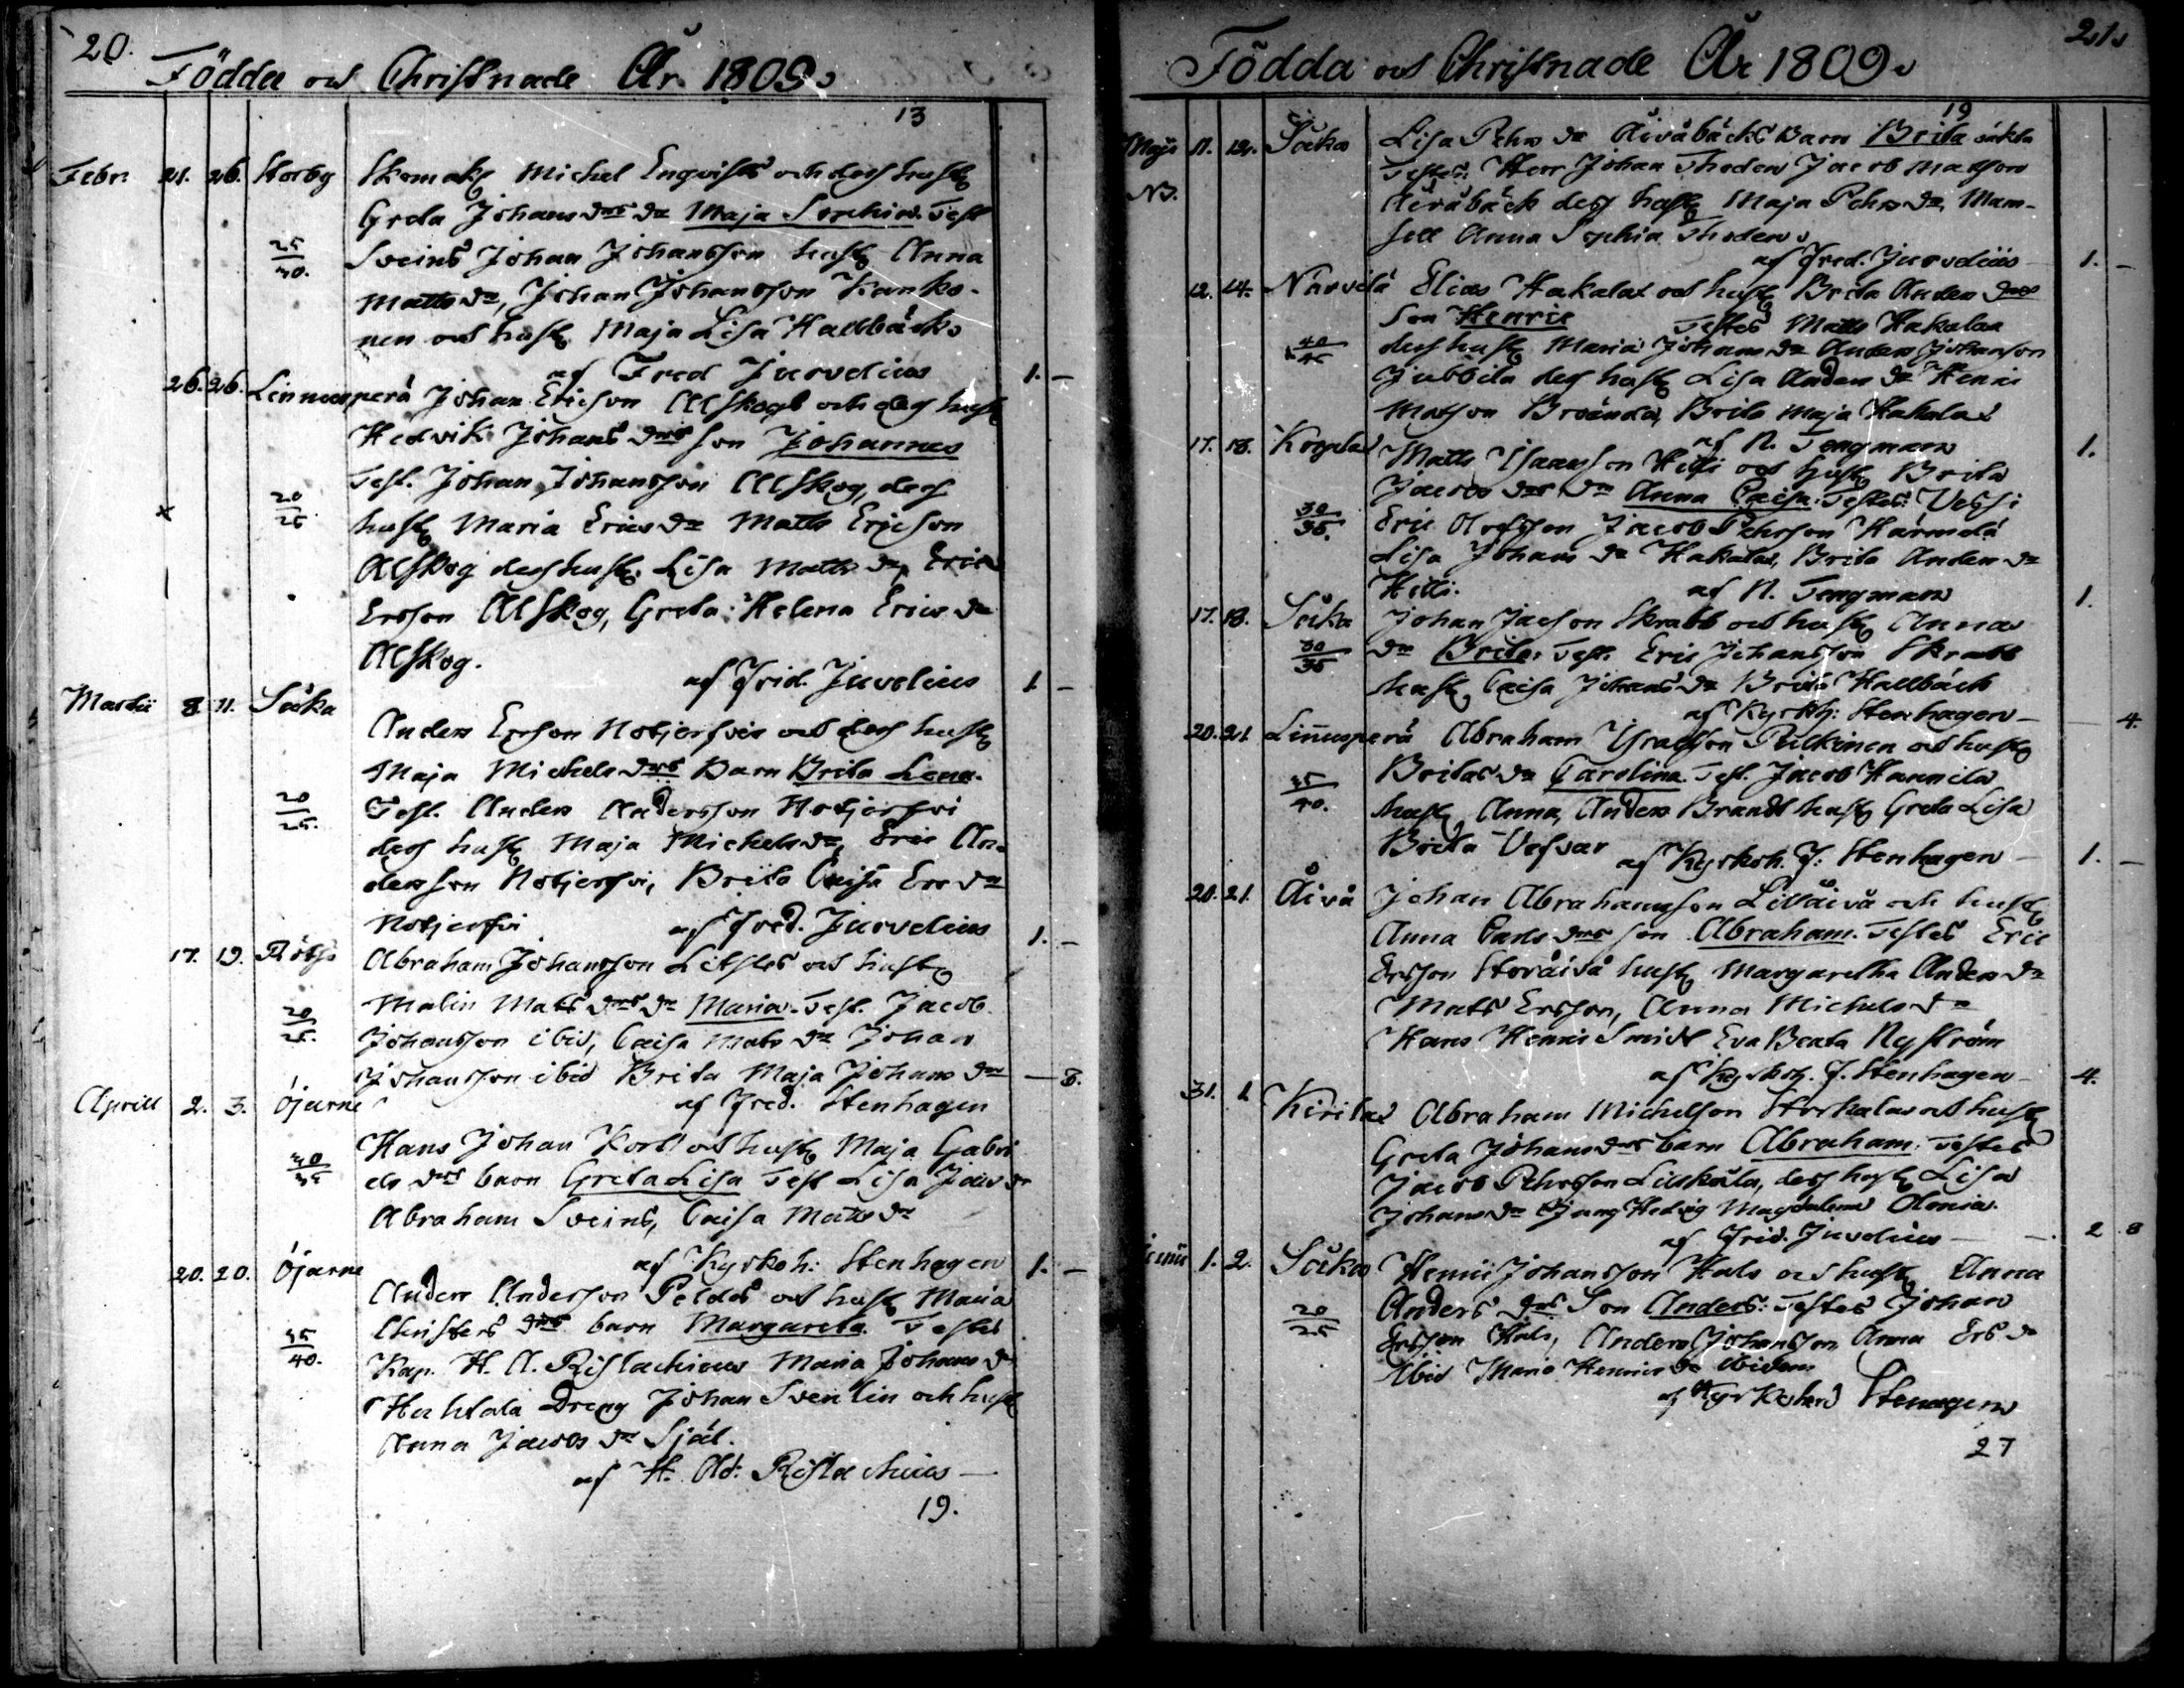 20.
Födda och Christnade År 1809.
13
Febr. 21. 26. Storby Skomak Michel Enqvists och dess hust
Greta Johans drs dr Maja Sophia. Test
25/30. Sveins Johan Johansson hust Anna
Matts dr, Johan Johansson Kanko-
nen och hust Maja Lisa Hallbäck
af Fred Juvelius 1. –
26. 26. Linnusperä Johan Ericson Alskogs och dess hust
Hedvik Johans drs son Johannes
Test. Johan Johansson Alskog, dess
x 20/25 hust Maria Erics dr Matts Ericson
Alskog dess hust. Lisa Matts dr, Eric
Ersson Alskog, Greta Helena Erics dr
Alskog.
af Frid. Juvelius 1. –
Martii 8. 11. Såka
Anders Ersson Notjerfvis och dess hust
Maja Michels drs Barn Brita Lena.
20/25. Test. Anders Andersson Notjerfvi
dess hust Maja Michels dr, Eric An-
dersson Notjerfvi, Brita Caisa Ers dr
Notjerfvi af Fred. Juvelius 1. –
17. 19. Rötsö Abraham Johansson Litsles och hust
Malin Mats drs dr Maria. Test. Jacob
20/25. Johansson ibid, Caisa Mats dr Johan
Johansson ibid Brita Maja Johans dr – 8.
Aprill 2. 3. Öjarne af Fred. Stenhagen
Hans Johan Korb och hust Maja Gabri
30/35 els drs barn Greta Lisa Test Lisa Jacs dr
Abraham Sveins, Caisa Matts dr
af Kyrkoh: Stenhagen 1. –
20. 20. Öjarne
Anders Anderson Peldos och hust Maria
Christers drs barn Margareta. Testes
35/40. Kap. H. A. Ristlachius Maria Johans dr
Huhtala Dreng Johan Svenlin och hust
Anna Jacobs dr Själ.
af H. Ad: Ristlachius –
19.
21.
Födda och Christnade År 1809.
19
Maji 11. 12. Såka Lisa Pehrs dr Åivåbäcks Barn Brita oäkta
Testes: Herr Johan Thoden Jacob Matson
NB. Åivåbäck dess hust Maja Pehrs dr, Mam-
sell Anna Sophia Thoden.
af Fred. Juvelius 1. –
12. 14. Närvilä Elias Hakalax och hust Brita Anders drs
son Henric Testes Matts Hakalax
40/45 dess hust Maria Johans dr Anders Johanson
Jubbila dess hust Lisa Anders dr Henric
Matson Brända, Brita Maja Hakalax
af N. Tengman 1.
17. 18. Korpilax Matts Isaacson Hilli och hust Brita
Jacobs drs dr Anna Caisa: Testes:
30/35. Eric Olofsson Jacob Pehrson Härmälä
Lisa Johans dr Hakalax, Brita Anders dr
Hilli. af N. Tengman 1.
17. 18. Såka Johan Jacson Skrabb och hust Anna
30/35 dr Brita. Test. Eric Johansson Skrabb
hust Caisa Johans dr Brita Hallbäck
af Kyrkh: Stenhagen – – 4.
20. 21. Linnusperä Abraham Israelson Pulkinen och hust
Britas dr Carolina. Test. Jacob Hannila
35/40. hust Anna, Anders Brandt hust Greta Lisa
Brita Ulfvar af Kyrkoh. J: Stenhagen – 1. –
20. 21. Åivå Johan Abrahamson Lillåivå och hust
Anna Carls drs son Abraham. Testes Eric
Ersson Storåivå hust Margaretha Anders dr
Mats Ersson, Anna Michels dr
Hans Henric Smidt Eva Beata Nyström
af Kyrkoh. J. Stenhagen – 4.
31. 1 Kirilax Abraham Michelson Storkalax och hust
Greta Johans drs barn Abraham: Testes
Jacob Pehrsson Liuskala, dess hust Lisa
Johans dr Jung Hedvig Magdalena Alonia.
af Frid. Juvelius – –. 2 8
Junii 1. 2. Såka Henric Johansson Hals och hust Anna
Anders drs Son Anders: Testes Johan
20/25 Ersson Hals, Anders Johansson Anna Ers dr
Ibid Maria Henrics dr Ibidem
af Kyrkoherd Stenhagen
27